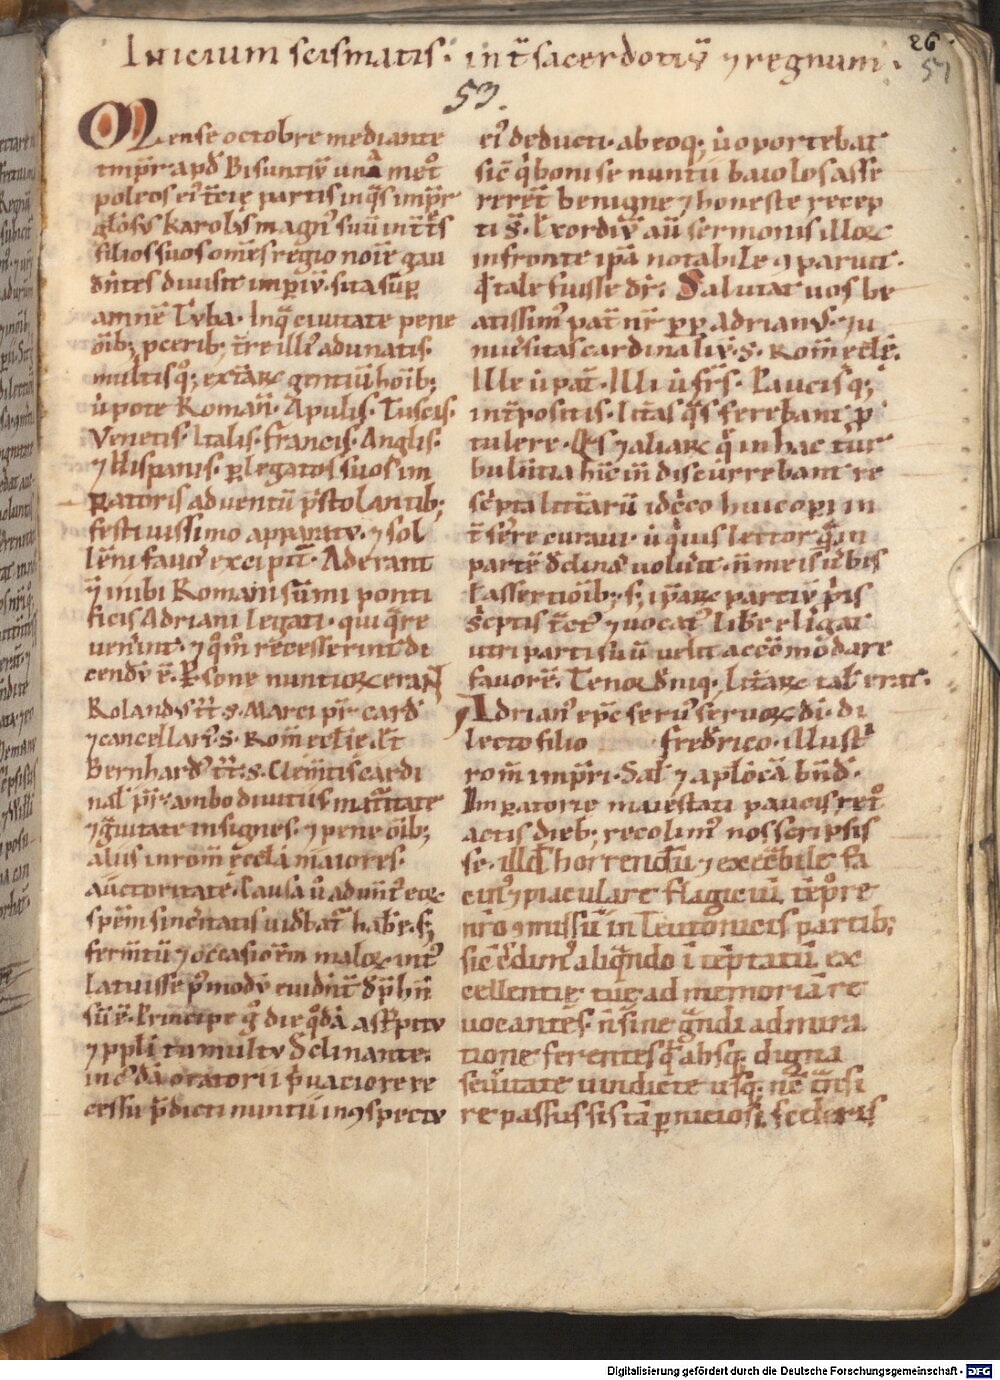 Inicium scismatis. int̄ sacerdotiū ⁊ regnum.
26
51
53.
Mense octobre mediante
imp̄r apd̄ Bisuntiū una met᷒
poleos ei᷒ t̄cię partis inq̄s imp̄r
gl̄osꝰ karolꝰ magnꝰ suū int̄ t̄s
filios suos om̄s regio noīe gau
dn̄tes diuisit imp̄iū. sita sup̄
amnē Tuba. Inq̄ ciuitate pene
oīb; pcerib; t̄re illiꝰ adunatis.
multisq̄; ext̄aꝝ gentiū hoīb;
ūpote Roman̄. Apulis. Tuscis.
Venetis. Italis. francis. Anglis.
⁊ Hispanis. ꝑ legatos suos im
ꝑatoris aduentū p̄stolantib;
festiuissimo apparatu. ⁊ sol
lēni fauore excipit᷒. Aderant
⁊ inibi Romani sūmi ponti
ficis Adriani Legati. qui q̄re
uenerint. ⁊ qm̄ recesserint di
cendū ē. Psone nuntioꝝ erant
Rolandꝰ tt̄ s. Marci p̄r card̄
⁊ cancellari᷒ s. Rom̄ ecclie. Et
Bernhardꝰ tt̄. s. Clem̄tis cardi
nal̄ p̄r. ambo diuitiis maturitate
⁊ grauitate insignes. ⁊ pene oīb;
aliis in rom̄ eccl̄a maiores.
auctoritate. Causa ū aduentꝰ eoꝝ
spēm sinceritatis uidebat᷒ habere. s;
ferm̄tū ⁊ occasionem maloꝝ int᷒
Latuisse p᷒modū euident᷒ dep̄hn̄
sū ē. Principe g᷒ die q̄dā a strepitu
⁊ ppli tumultu declinante.
in cuiꝰdā oratorii p̄uaciore re
cessu p̄dicti nuntii in ꝯspectu
eiꝰ deducti. ab eoq; ū oportebat
sic̄ q̄ boni se nuntii baiolos asse
rerēt benigne ⁊ honeste recep
ti s̄. Exordiū aū sermonis illoꝝ
in fronte ip̄a notabile ꝯparuit.
q̄ tale fuisse dr̄. Salutat uos be
atissimꝰ pat̄ nr̄ pp̄ Adrianꝰ. ⁊ u
niuersitas cardinaliū. s. Rom̄ eccl̄ę.
Ille ū pat̄. Illi ū fr̄s. Paucisq;
int̄positis. Litas q̄s ferebant p̄
tulere. q̄s ⁊ aliaꝝ q̄ in hac tur
bulentia hīc īn discurrebant re
scripta litt̄arū idc̄co huic operi in
t̄sere curaui. ū quis lector q̄ in
partē declinare uoluerit. n̄ meis ūbis
ł assertiōib;. s; ip̄aꝝ partiū p̄is
scriptis tractꝰ ⁊ uocatꝰ libere eligat
utri parti suū uelit accomodare
fauorē. Tenor deniq; litaꝝ tal̄ erat.
Adrianꝰ ep̄c seruꝰ seruoꝝ di. di
lecto filio frederico. illustri
rom̄ imp̄ri. Sal̄ ⁊ apl̄ocā bn̄d̄.
Imperatorie maiestati paucis ret᷒
actis dieb; recolimꝰ nos scripsis
se. illud horrendū ⁊ execrabile fa
cinꝰ ⁊ piaculare flagiciū tēpore
nr̄o ꝯmissū in Teutonicis partib;
sic̄ credimꝰ aliq̄ndo ītēptatū ex
cellentię tuę ad memoriā re
uocantes. n̄ sine grandi admira
tione ferentes q̄ absq; digna
seueritate uindicte usq; nc̄ transi
re passus sis tā ꝑniciosi sceleris
Digitalisierung gefördert durch die Deutsche Forschungsgemeinschaft - DFG